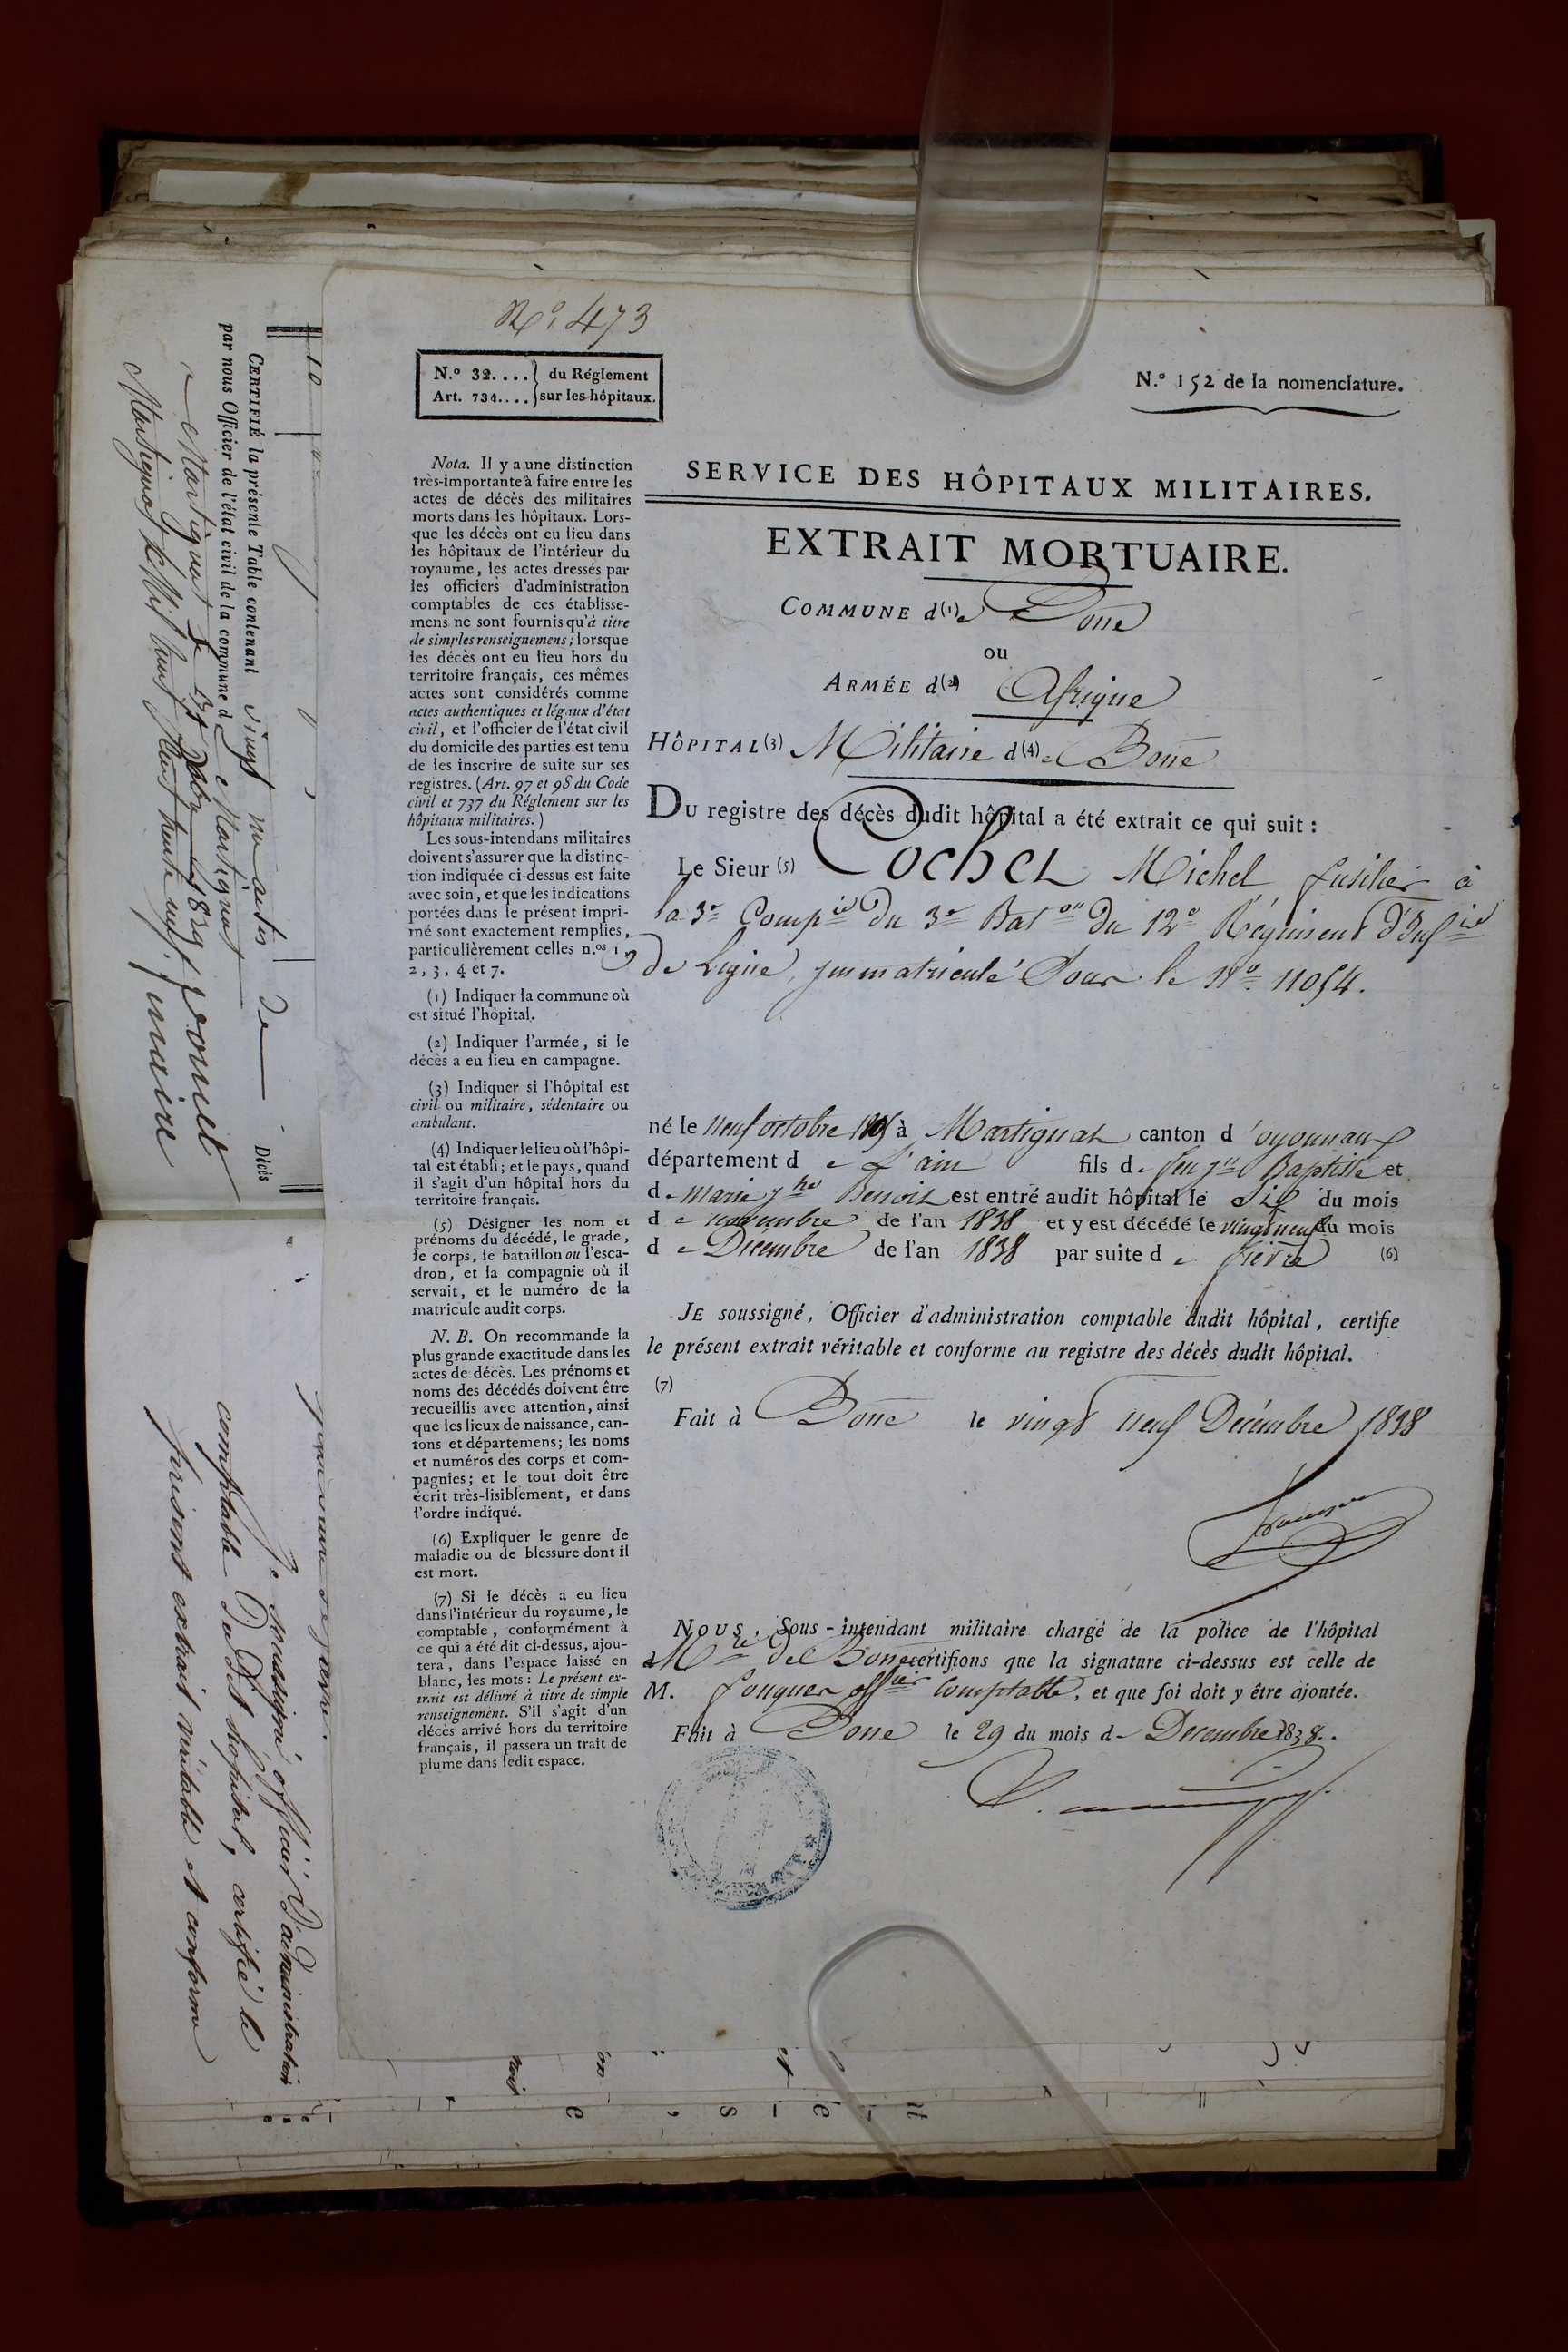 N.o 473
N.o 32.... } du Réglement
Art. 734.... } sur les hôpitaux.
N.o 152 de la nomenclature.
Nota. Il y a une distinction
très-importante à faire entre les
actes de décès des militaires
morts dans les hôpitaux. Lors-
que les décès ont eu lieu dans
les hôpitaux de l'intérieur du
royaume, les actes dressés par
les officiers d'administration
comptables de ces établisse-
mens ne sont fournis qu'à titre
de simples renseignemens; lorsque
les décès ont eu lieu hors du
territoire français, ces mêmes
actes sont considérés comme
actes authentiques et légaux d'état
civil, et l'officier de l'état civil
du domicile des parties est tenu
de les inscrire de suite sur ses
registres. (Art. 97 et 98 du Code
civil et 737 du Réglement sur les
hôpitaux militaires.)
Les sous-intendans militaires
doivent s'assurer que la distinc-
tion indiquée ci-dessus est faite
avec soin, et que les indications
portées dans le présent impri-
mé sont exactement remplies,
particulièrement celles n.os 1,
2, 3, 4 et 7.
(1) Indiquer la commune où
est situé l'hôpital.
(2) Indiquer l'armée, si le
décès a eu lieu en campagne.
(3) Indiquer si l'hôpital est
civil ou militaire, sédentaire ou
ambulant.
(4) Indiquer le lieu où l'hôpi-
tal est établi; et le pays, quand
il s'agit d'un hôpital hors du
territoire français.
(5) Désigner les nom et
prénoms du décédé, le grade,
le corps, le bataillon ou l'esca-
dron, et la compagnie où il
servait, et le numéro de la
matricule audit corps.
N. B. On recommande la
plus grande exactitude dans les
actes de décès. Les prénoms et
noms des décédés doivent être
recueillis avec attention, ainsi
que les lieux de naissance, can-
tons et départemens; les noms
et numéros des corps et com-
pagnies; et le tout doit être
écrit très-lisiblement, et dans
l'ordre indiqué.
(6) Expliquer le genre de
maladie ou de blessure dont il
est mort.
(7) Si le décès a eu lieu
dans l'intérieur du royaume, le
comptable, conformément à
ce qui a été dit ci-dessus, ajou-
tera, dans l'espace laissé en
blanc, les mots: Le présent ex-
trait est délivré à titre de simple
renseignement. S'il s'agit d'un
décès arrivé hors du territoire
français, il passera un trait de
plume dans ledit espace.
SERVICE DES HÔPITAUX MILITAIRES.
EXTRAIT MORTUAIRE.
COMMUNE d(1)e Bone
ou
ARMÉE d(2) Afrique
HÔPITAL(3) Militaire d(4)e Bone
DU registre des décès dudit hôpital a été extrait ce qui suit :
Le Sieur (5) Cochet Michel fusilier à
la 3e Compie du 3e Baton du 12e Régiment d'Infie
de Ligne, immatriculé sous le No 11054.
né le neuf octobre à Martignat canton d'oyonnax
département de L'ain fils de feu Jn Baptiste et
d. marie Benoit est entré audit hôpital le Six du mois
de novembre de l'an 1838 et y est décédé le vingt neuf du mois
de Décembre de l'an 1838 par suite de fièvre (6)
JE soussigné, Officier d'administration comptable dudit hôpital, certifie
le présent extrait véritable et conforme au registre des décès dudit hôpital.
(7)
Fait à Bone le vingt neuf Décembre 1838
NOUS, Sous-intendant militaire chargé de la police de l'hôpital
Mre de Bone certifions que la signature ci-dessus est celle de
M. fouquer offier Comptable, et que foi doit y être ajoutée.
Fait à Bone le 29 du mois de Décembre 1838.
CERTIFIÉ la présente Table contenant vingt actes de Décès
par nous Officier de l'état civil de la commune d Martignat
Martignat le 1839
maire
Je soussigné officier d'administration
comptable Du dit hopital, certifie le
présent extrait véritable et conforme